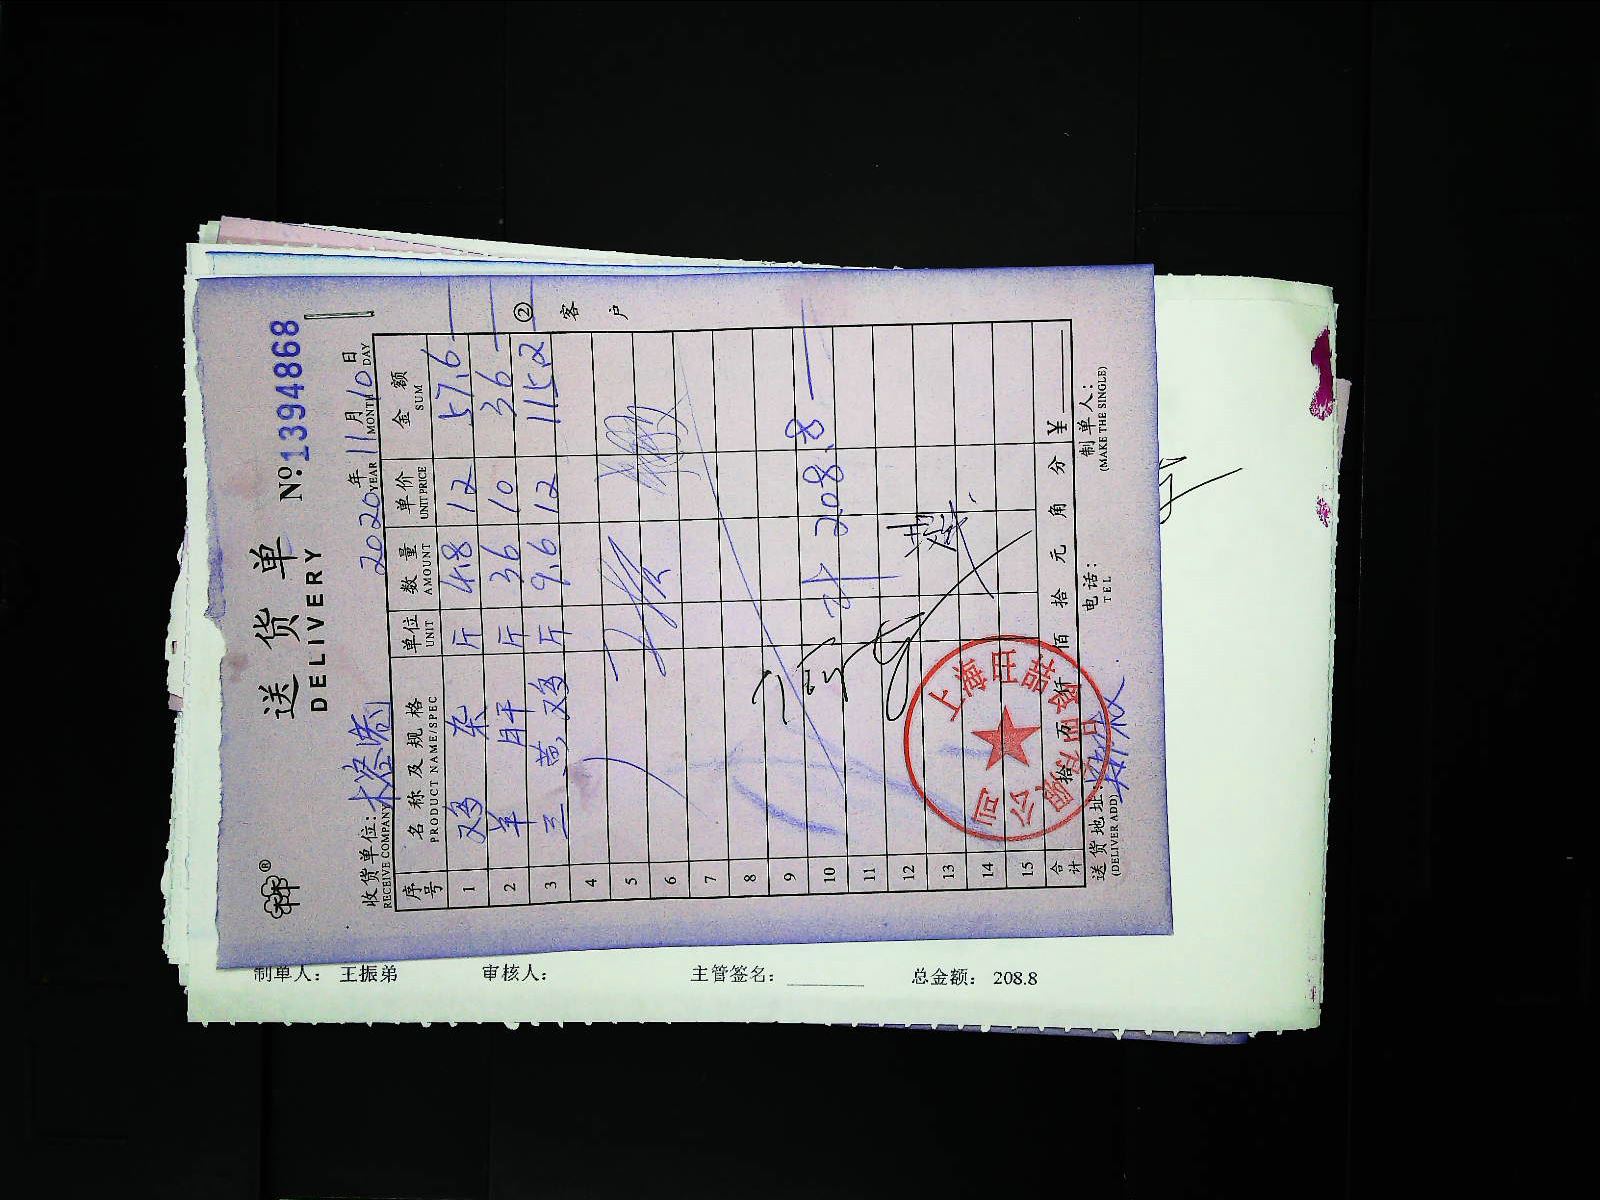 送货单
DELIVERY
№:1394868
收货单位:
RECEIVE COMPANY
2020年11月10日
YEAR MONTH DAY
序号 名称及规格 单位 数量 单价 金额
PRODUCT NAME/SPEC UNIT AMOUNT UNIT PRICE SUM
1 鸡杂 斤 4.8 12 57.6
2 羊肝 斤 3.6 10 36
3 三黄鸡 斤 9.6 12 115.2
4
5
6
7
8
9
10 计 208.8
11
12
13
14
15
合计 拾 万 仟 佰 拾 元 角 分 ¥
送货地址:
(DELIVER ADD)
电话:
TEL
制单人:
(MAKE THE SINGLE)
②客户
上海旺喆
有限公司
制单人: 王振弟 审核人: 主管签名: 总金额: 208.8